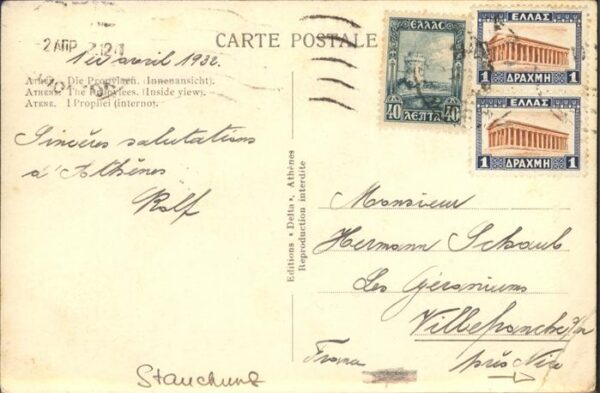 CARTE POSTALE
2 ΑΠΡ
1er avril 1932.
Die Propylaen. (Innenansicht).
ATHENS. The (Inside view).
ATENE. I Propilei (interno).
Sincères salutations
d'Athènes
Rolf
Editions « Delta », Athènes
Reproduction interdite
ΕΛΛΑΣ
40 ΛΕΠΤΑ 40
ΕΛΛΑΣ
1 ΔΡΑΧΜΗ 1
ΕΛΛΑΣ
1 ΔΡΑΧΜΗ 1
Monsieur
Hermann Schaub
Les Géraniums
Villefranche s/m
près Nice
France
Stauchung